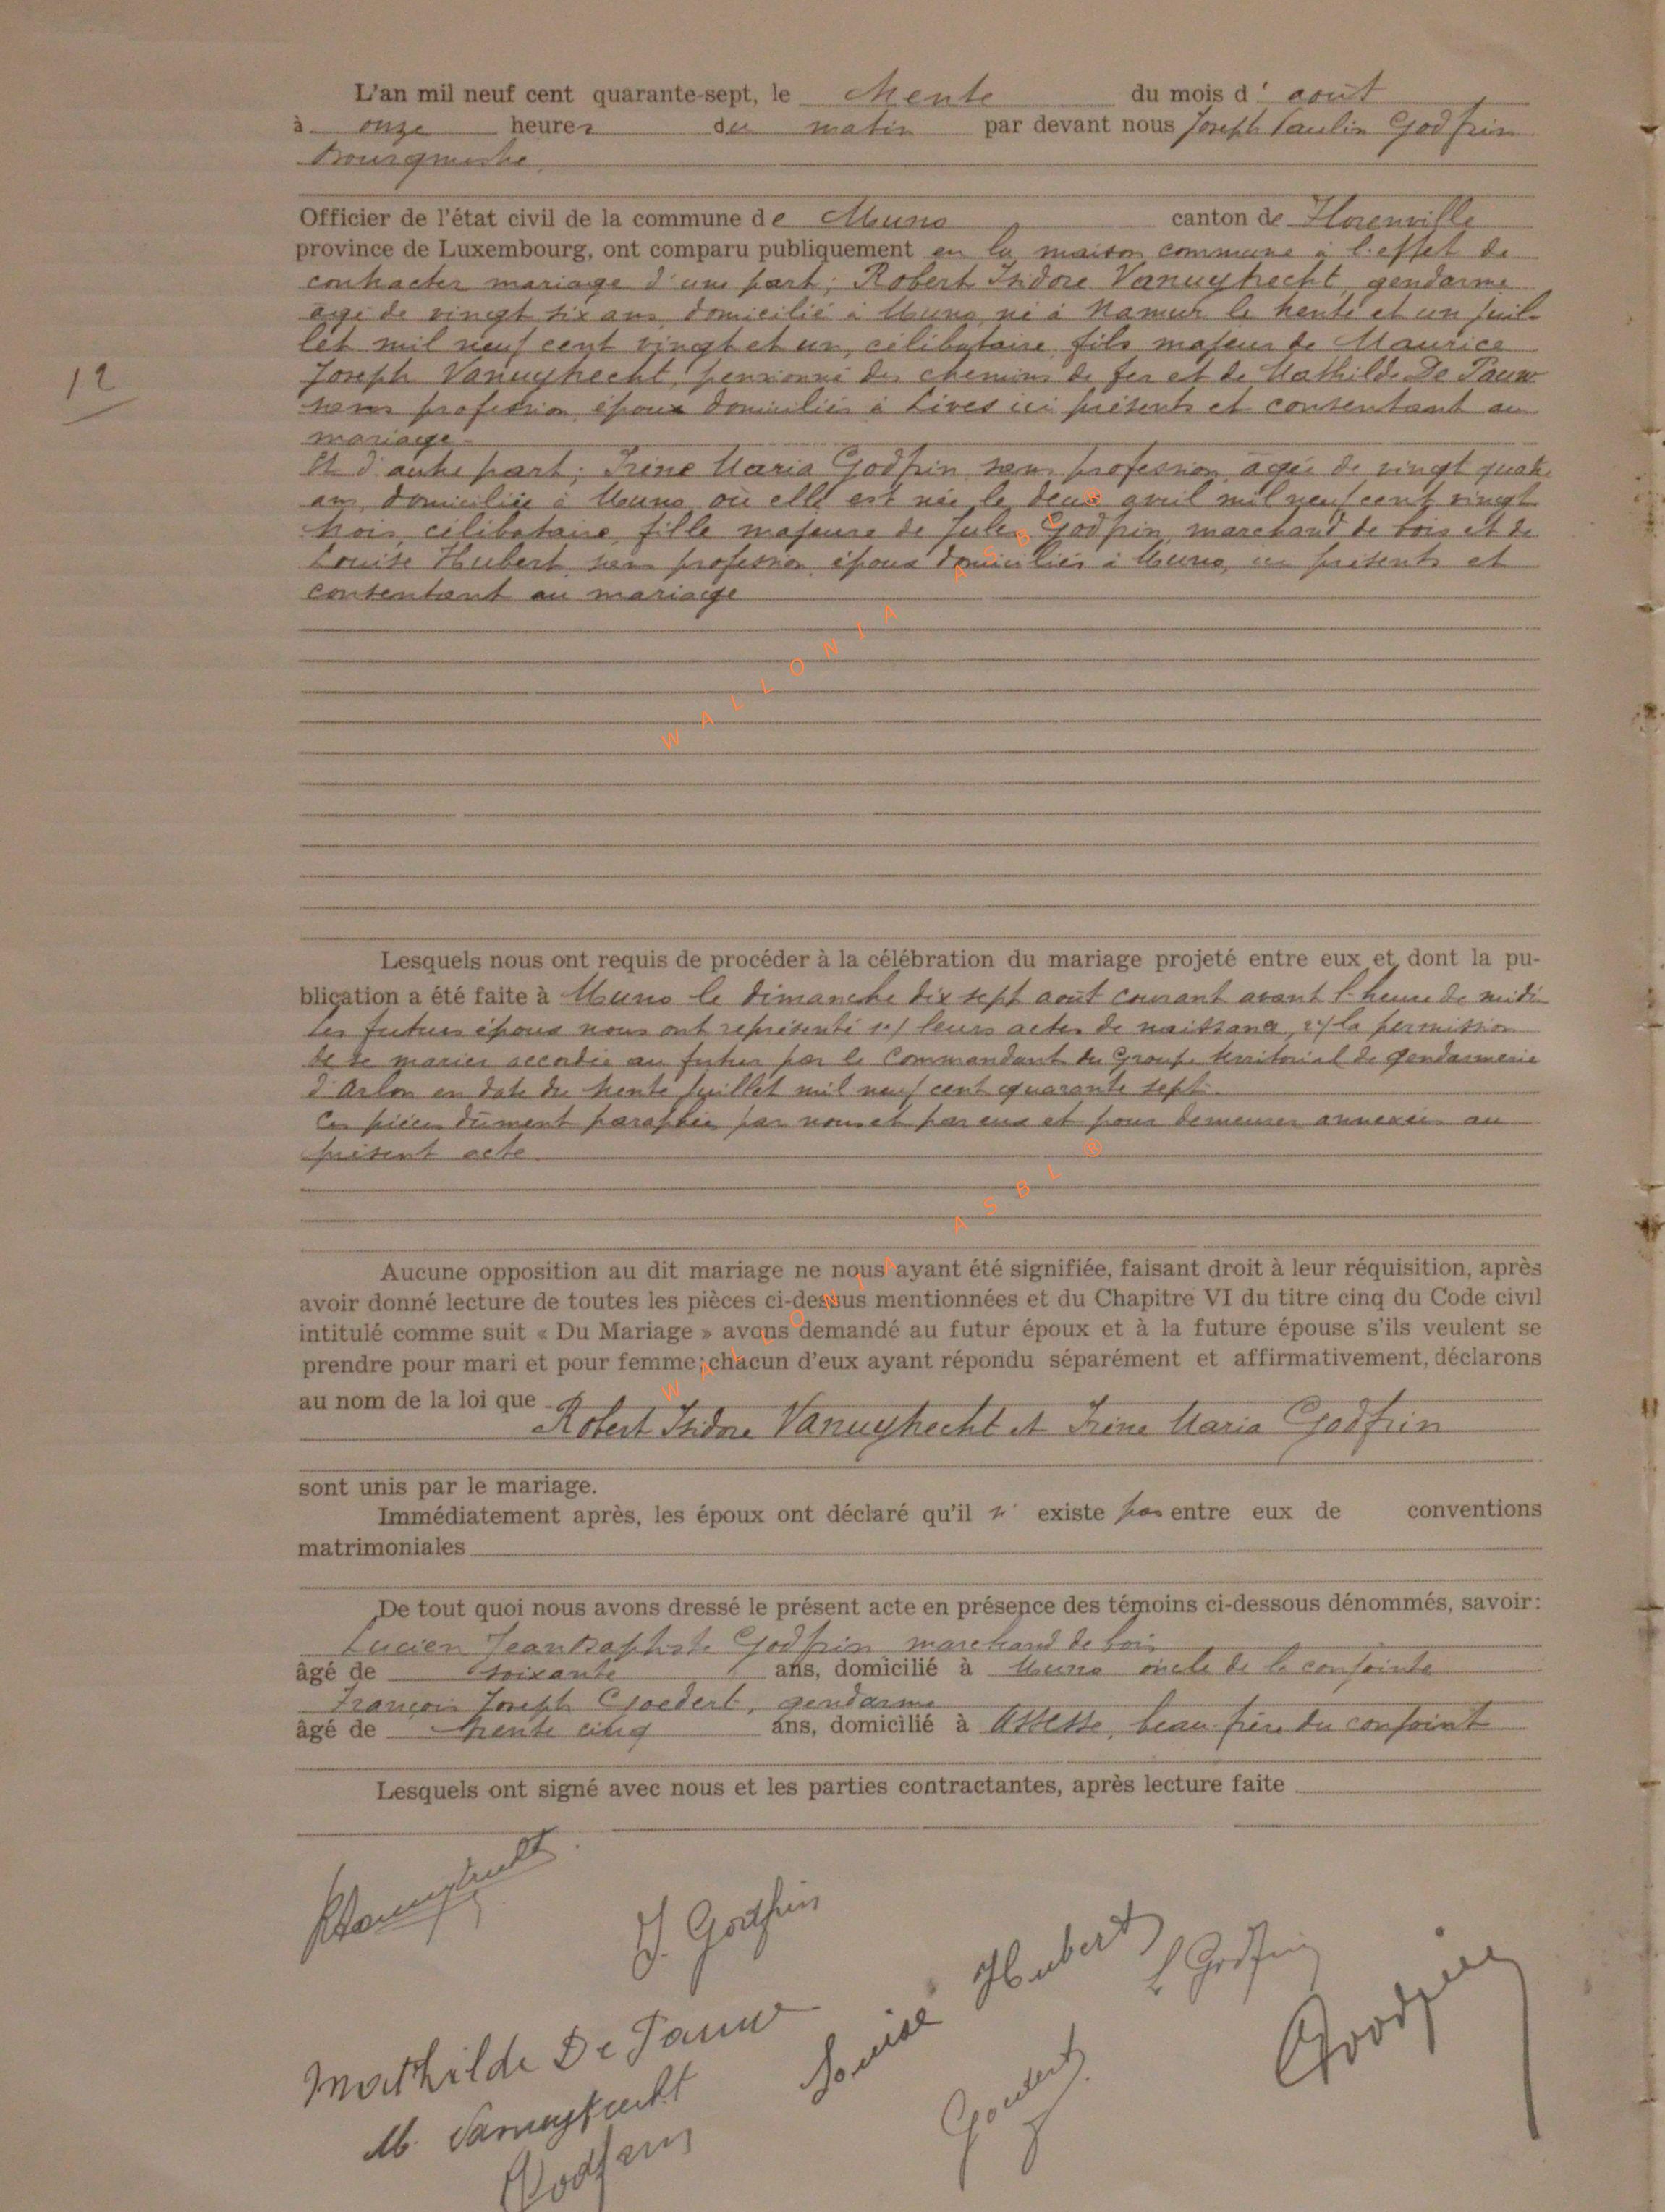 L'an mil neuf cent quarante-sept, le trente du mois d' août
à onze heures du matin par devant nous Joseph Paulin Godfrin
Bourgmestre
Officier de l'état civil de la commune de Muno canton de Florenville
province de Luxembourg, ont comparu publiquement en la maison commune à l'effet de
contracter mariage d'une part; Robert Isidore Vanuytrecht gendarme
âgé de vingt six ans domicilié à Muno né à Namur le trente et un juil-
let mil neuf cent vingt et un, célibataire fils majeur de Maurice
12
Joseph Vanuytrecht, pensionné des chemins de fer et de Mathilde De Pauw
sans profession époux domiciliés à Lives ici présents et consentant au
mariage.
Et d'autre part; Irène Maria Godfrin sans profession âgée de vingt quatre
ans, domiciliée à Muno où elle est née le deux avril mil neuf cent vingt
trois célibataire fille majeure de Jules Godfrin marchand de bois et de
Louise Hubert sans profession époux domiciliés à Muno, ici présents et
consentant au mariage
WALLONIA ASBL
Lesquels nous ont requis de procéder à la célébration du mariage projeté entre eux et dont la pu-
blication a été faite à Muno le dimanche dix sept août courant avant l'heure de midi
les futurs époux nous ont représenté 1°/ leurs actes de naissance, 2°/ la permission
de se marier accordée au futur par le Commandant du Groupe territorial de gendarmerie
d'Arlon en date du trente juillet mil neuf cent quarante sept.
Ces pièces dûment paraphées par nous et par eux et pour demeurer annexées au
présent acte
WALLONIA ASBL ®
Aucune opposition au dit mariage ne nous ayant été signifiée, faisant droit à leur réquisition, après
avoir donné lecture de toutes les pièces ci-dessus mentionnées et du Chapitre VI du titre cinq du Code civil
intitulé comme suit « Du Mariage » avons demandé au futur époux et à la future épouse s'ils veulent se
prendre pour mari et pour femme; chacun d'eux ayant répondu séparément et affirmativement, déclarons
au nom de la loi que
Robert Isidore Vanuytrecht et Irène Maria Godfrin
sont unis par le mariage.
Immédiatement après, les époux ont déclaré qu'il n' existe pas entre eux de conventions
matrimoniales
De tout quoi nous avons dressé le présent acte en présence des témoins ci-dessous dénommés, savoir:
Lucien Jean Baptiste Godfrin marchand de bois
âgé de soixante ans, domicilié à Muno oncle de la conjointe
François Joseph Goedert, gendarme
âgé de trente cinq ans, domicilié à Assesse, beau-frère du conjoint
Lesquels ont signé avec nous et les parties contractantes, après lecture faite
RVanuytrecht
I. Godfrin
Louise Hubert
L Godfrin
Godfrin
Mathilde De Pauw
M. Vanuytrecht
Goedert
Godfrin